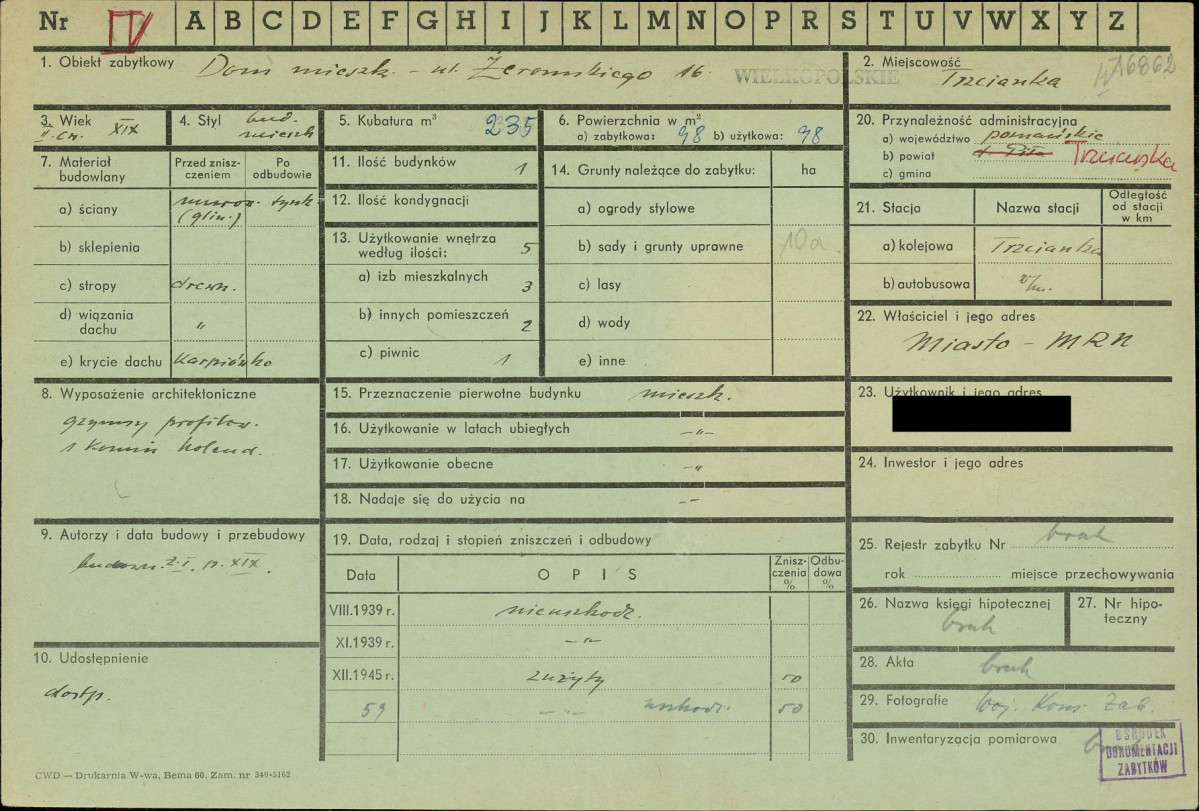 Nr IV A B C D E F G H I J K L M N O P R S T U V W X Y Z
1. Obiekt zabytkowy Dom mieszk. - ul. Żeromskiego 16.
WIELKOPOLSKIE
2. Miejscowość Trzcianka
16862
3. Wiek XIX
4. Styl bud. mieszk
5. Kubatura m³ 235
6. Powierzchnia w m²
a) zabytkowa: 98 b) użytkowa: 98
20. Przynależność administracyjna
a) województwo poznańskie
b) powiat Trzcianka
c) gmina
7. Materiał budowlany
Przed zniszczeniem
Po odbudowie
a) ściany murow. tynk
(glin.)
b) sklepienia
c) stropy drewn.
d) wiązania dachu "
e) krycie dachu Karpiówka
11. Ilość budynków 1
12. Ilość kondygnacji
13. Użytkowanie wnętrza według ilości: 5
a) izb mieszkalnych 3
b) innych pomieszczeń 2
c) piwnic 1
14. Grunty należące do zabytku: ha
a) ogrody stylowe
b) sady i grunty uprawne 10a
c) lasy
d) wody
e) inne
21. Stacja
Nazwa stacji
Odległość od stacji w km
a) kolejowa Trzcianka
b) autobusowa
22. Właściciel i jego adres
Miasto - MRN
8. Wyposażenie architektoniczne
gzymsy profilow.
1 komin holend.
15. Przeznaczenie pierwotne budynku mieszk.
16. Użytkowanie w latach ubiegłych -"-
17. Użytkowanie obecne -"
18. Nadaje się do użycia na --
23. Użytkownik i jego adres
24. Inwestor i jego adres
9. Autorzy i data budowy i przebudowy
p. XIX.
19. Data, rodzaj i stopień zniszczeń i odbudowy
Data
OPIS
Zniszczenia %
Odbudowa %
VIII.1939 r. nieuszkodz.
XI.1939 r. -"-
XII.1945 r. zużyty 50
59 -"- 50
25. Rejestr zabytku Nr brak
rok miejsce przechowywania
26. Nazwa księgi hipotecznej
brak
27. Nr hipoteczny
10. Udostępnienie
dostp.
28. Akta brak
29. Fotografie Woj. Kons. Zab.
30. Inwentaryzacja pomiarowa
OŚRODEK
DOKUMENTACJI
ZABYTKÓW
CWD — Drukarnia W-wa, Bema 60. Zam. nr 349-5162